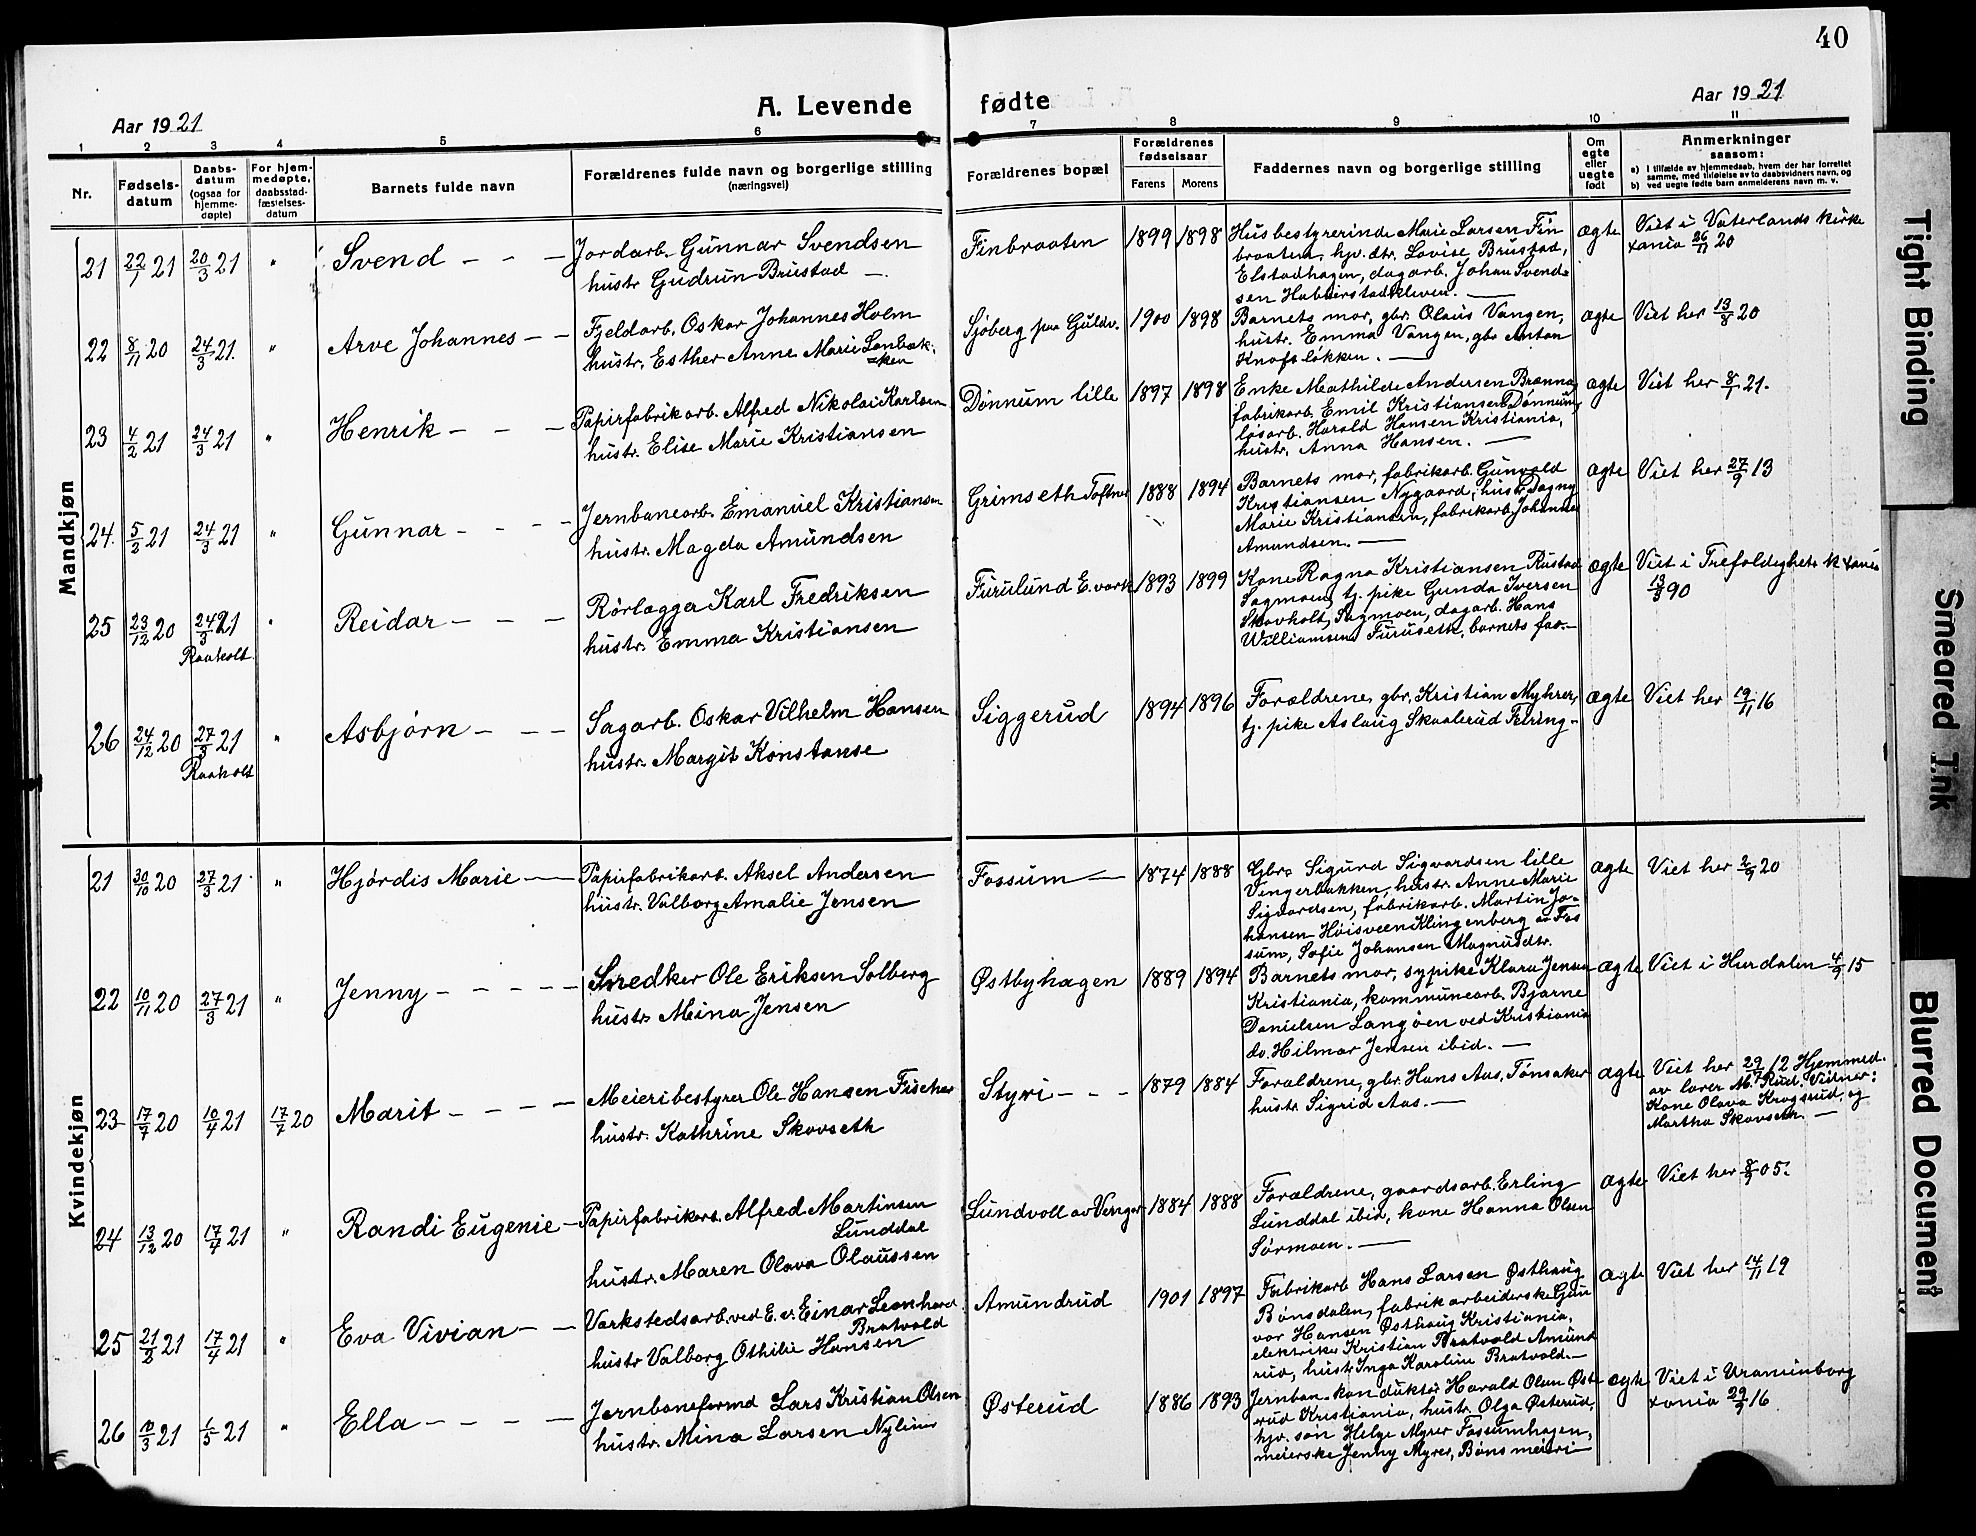 40
A. Levende fødte
Aar 1921
Aar 1921
1 2 3 4 5 6 7 8 9 10 11
Nr.
Fødsels-
datum
Daabs-
datum
(ogsaa for
hjemme-
døpte)
For hjem-
medøpte,
daabsstad-
fæstelses-
datum
Barnets fulde navn
Forældrenes fulde navn og borgerlige stilling
(næringsvei)
Forældrenes bopæl
Forældrenes
fødselsaar
Farens Morens
Faddernes navn og borgerlige stilling
Om
egte
eller
uegte
født
Anmerkninger
saasom:
a) I tilfælde av hjemmedaab, hvem der har forrettet
samme, med tilføielse av to daabsvidners navn, og
b) ved uegte fødte barn anmelderens navn m. v.
Mandkjøn
21 22/1 21 20/3 21 " Svend - - -
Jordarb. Gunnar Svendsen
hustr. Gudrun Brustad -
Finbraaten 1899 1898
Husbestyrerinde Marie Larsen Fin
braaten, hjv. dtr. Lovise Brustad,
Elstadhagen, dagarb. Johan Svend=
sen Habberstadkleven. -
ægte
Viet i Vaterlands kirke
xania 26/11 20
22 8/11 20 24/3 21. " Arve Johannes - -
Fjeldarb. Oskar Johannes Holm
hustr. Esther Anne Marie Lonbæk-
=ken
Sjøberg paa Guldv. 1900 1898
Barnets mor, gbr. Olaus Vangen,
hustr. Emma Vangen, gbr Anton
Knofsløkken. -
ægte
Viet her 13/8 20
23 4/2 21 24/3 21 " Henrik - - -
Papirfabrikarb. Alfred Nikolai Karlsen
hustr. Elise Marie Kristiansen
Dønnum lille 1897 1898
Enke Mathilde Andersen Brænna,
fabrikarb. Emil Kristiansen Dønnum,
løsarb. Harald Hansen Kristiania,
hustr. Anna Hansen. -
ægte
Viet her 8/1 21.
24. 5/2 21 24/3 21 " Gunnar - - - -
Jernbanearb. Emanuel Kristiansen
hustr. Magda Amundsen
Grimseth Toftner 1888 1894
Barnets mor, fabrikarb. Gunvald
Kristiansen Nygaard, hustr Dagny
Marie Kristiansen, fabrikarb. Johannes
Amundsen. -
ægte
Viet her 27/9 13
25 23/12 20 24/3 21 " Reidar - - -
Raaholt.
Rørlægger Karl Fredriksen
hustr. Emma Kristiansen
Furulund E.værk 1893 1899
Kone Ragna Kristiansen Rustad
Sagmoen, tj. pike Gunda Iversen
Skovholt, Sagmoen, dagarb. Hans
Williamsen Furuseth, barnets far. -
ægte
Viet i Trefoldighets k xania
13/3 90
26 24/12 20 27/3 21 " Asbjørn - - -
Raaholt
Sagarb. Oskar Vilhelm Hansen
hustr. Margit Konstanse
Siggerud 1894 1896
Forældrene, gbr. Kristian Myhrer,
tj. pike Aslaug Skaalerud Feiring -
ægte
Viet her 19/11 16
Kvindekjøn
21 30/10 20 27/3 21 " Hjørdis Marie -
Papirfabrikarb. Aksel Andersen
hustr. Valborg Amalie Jensen
Fossum - 1874 1888
Gbr. Sigurd Sigvardsen lille
Vingerbakken, hustr. Anne Marie
Sigvardsen, fabrikarb. Martin Jo=
hansen Høisveen Klingenberg av Fos
sum, Sofie Johansen Magnusdtr.
ægte
Viet her 2/9 20
22 10/11 20 27/3 21 " Jenny - - - - -
Snedker Ole Eriksen Solberg
hustr. Mina Jensen
Østbyhagen 1889 1894
Barnets mor, sypike Klara Jensen
Kristiania, kommunearb. Bjarne
Danielsen Langøen ved Kristiania
do. Hilmar Jensen ibid. -
ægte
Viet i Hurdalen 4/9 15
23 17/7 20 10/4 21 17/7 20 Marit - - - -
Meieribestyrer Ole Hansen Fischer
hustr. Kathrine Skovseth
Styri - - - 1879 1884
Forældrene, gbr. Hans Aas, Tønsaker
hustr. Sigrid Aas. -
ægte
Viet her 29/7 12 Hjemmed.
av lærer M. Rud. Vidner:
Kone Olava Krogsrud, og
Martha Skovseth. -
24 13/12 20 17/4 21 " Randi Eugenie -
Papirfabrikarb. Alfred Martinsen
Lunddal
hustr. Maren Olava Olaussen
Lundvoll av Venger 1884 1888
Forældrene, gaardsarb. Erling
Lunddal ibid, kone Hanna Olsen
Sørmoen. -
ægte
Viet her 8/9 05.
25 21/2 21 17/4 21 " Eva Vivian - -
Værkstedsarb. ved E.v. Einar Leonhard
Bratvold
hustr Valborg Othilie Hansen
Amundrud 1901 1897
Fabrikarb Hans Larsen Østhaug
Bønsdalen, fabrikarbeiderske Gun
vor Hansen Østhaug Kristiania,
elektriker Kristian Bratvold Amund
rud, hustr. Inga Karoline Bratvold. -
ægte
Viet her 14/11 19
26 10/3 21 1/5 21 " Ella - - - -
Jernbaneformd Lars Kristian Olsen
hustr. Mina Larsen Nyliner
Østerud 1886 1893
Jernban. konduktør Harald Olsen Øst-
rud Kristiania, hustr. Olga Østerud,
hjv. søn Helge Myrer Fossumhagen,
meierske Jenny Myrer, Bøns meieri
ægte
Viet i Uranienborg
xania 29/9 16.
Tight Binding
Smeared Ink
Blurred Document